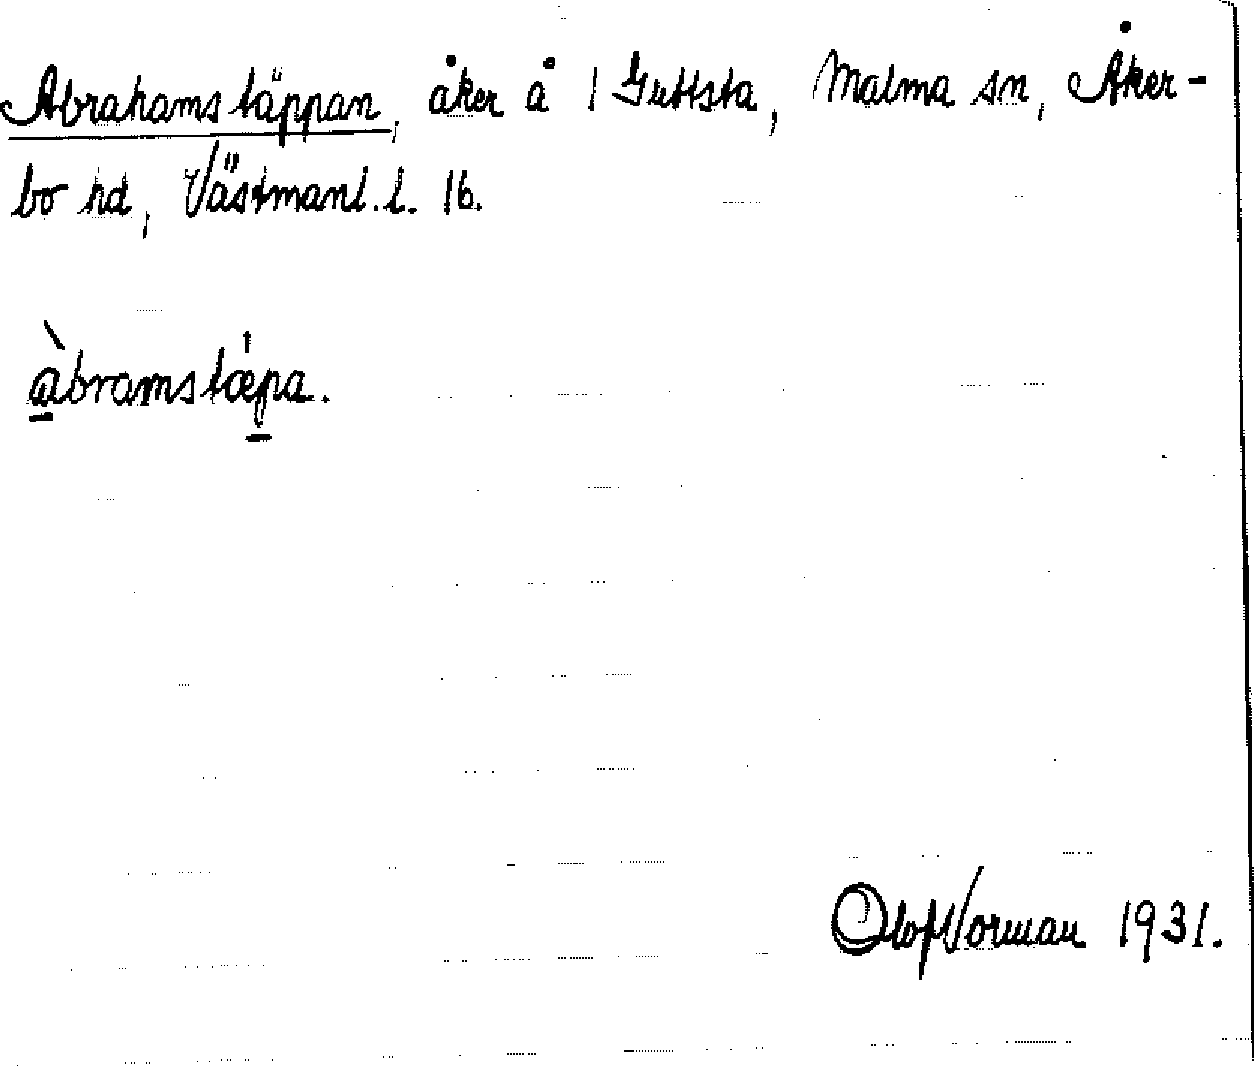 Abrahamstäppan, åker å 1 Guttsta, Malma sn, Åker-
bo hd, Västmanl. l. 16.
àbramstæ̀pa.
Olof Norman 1931.